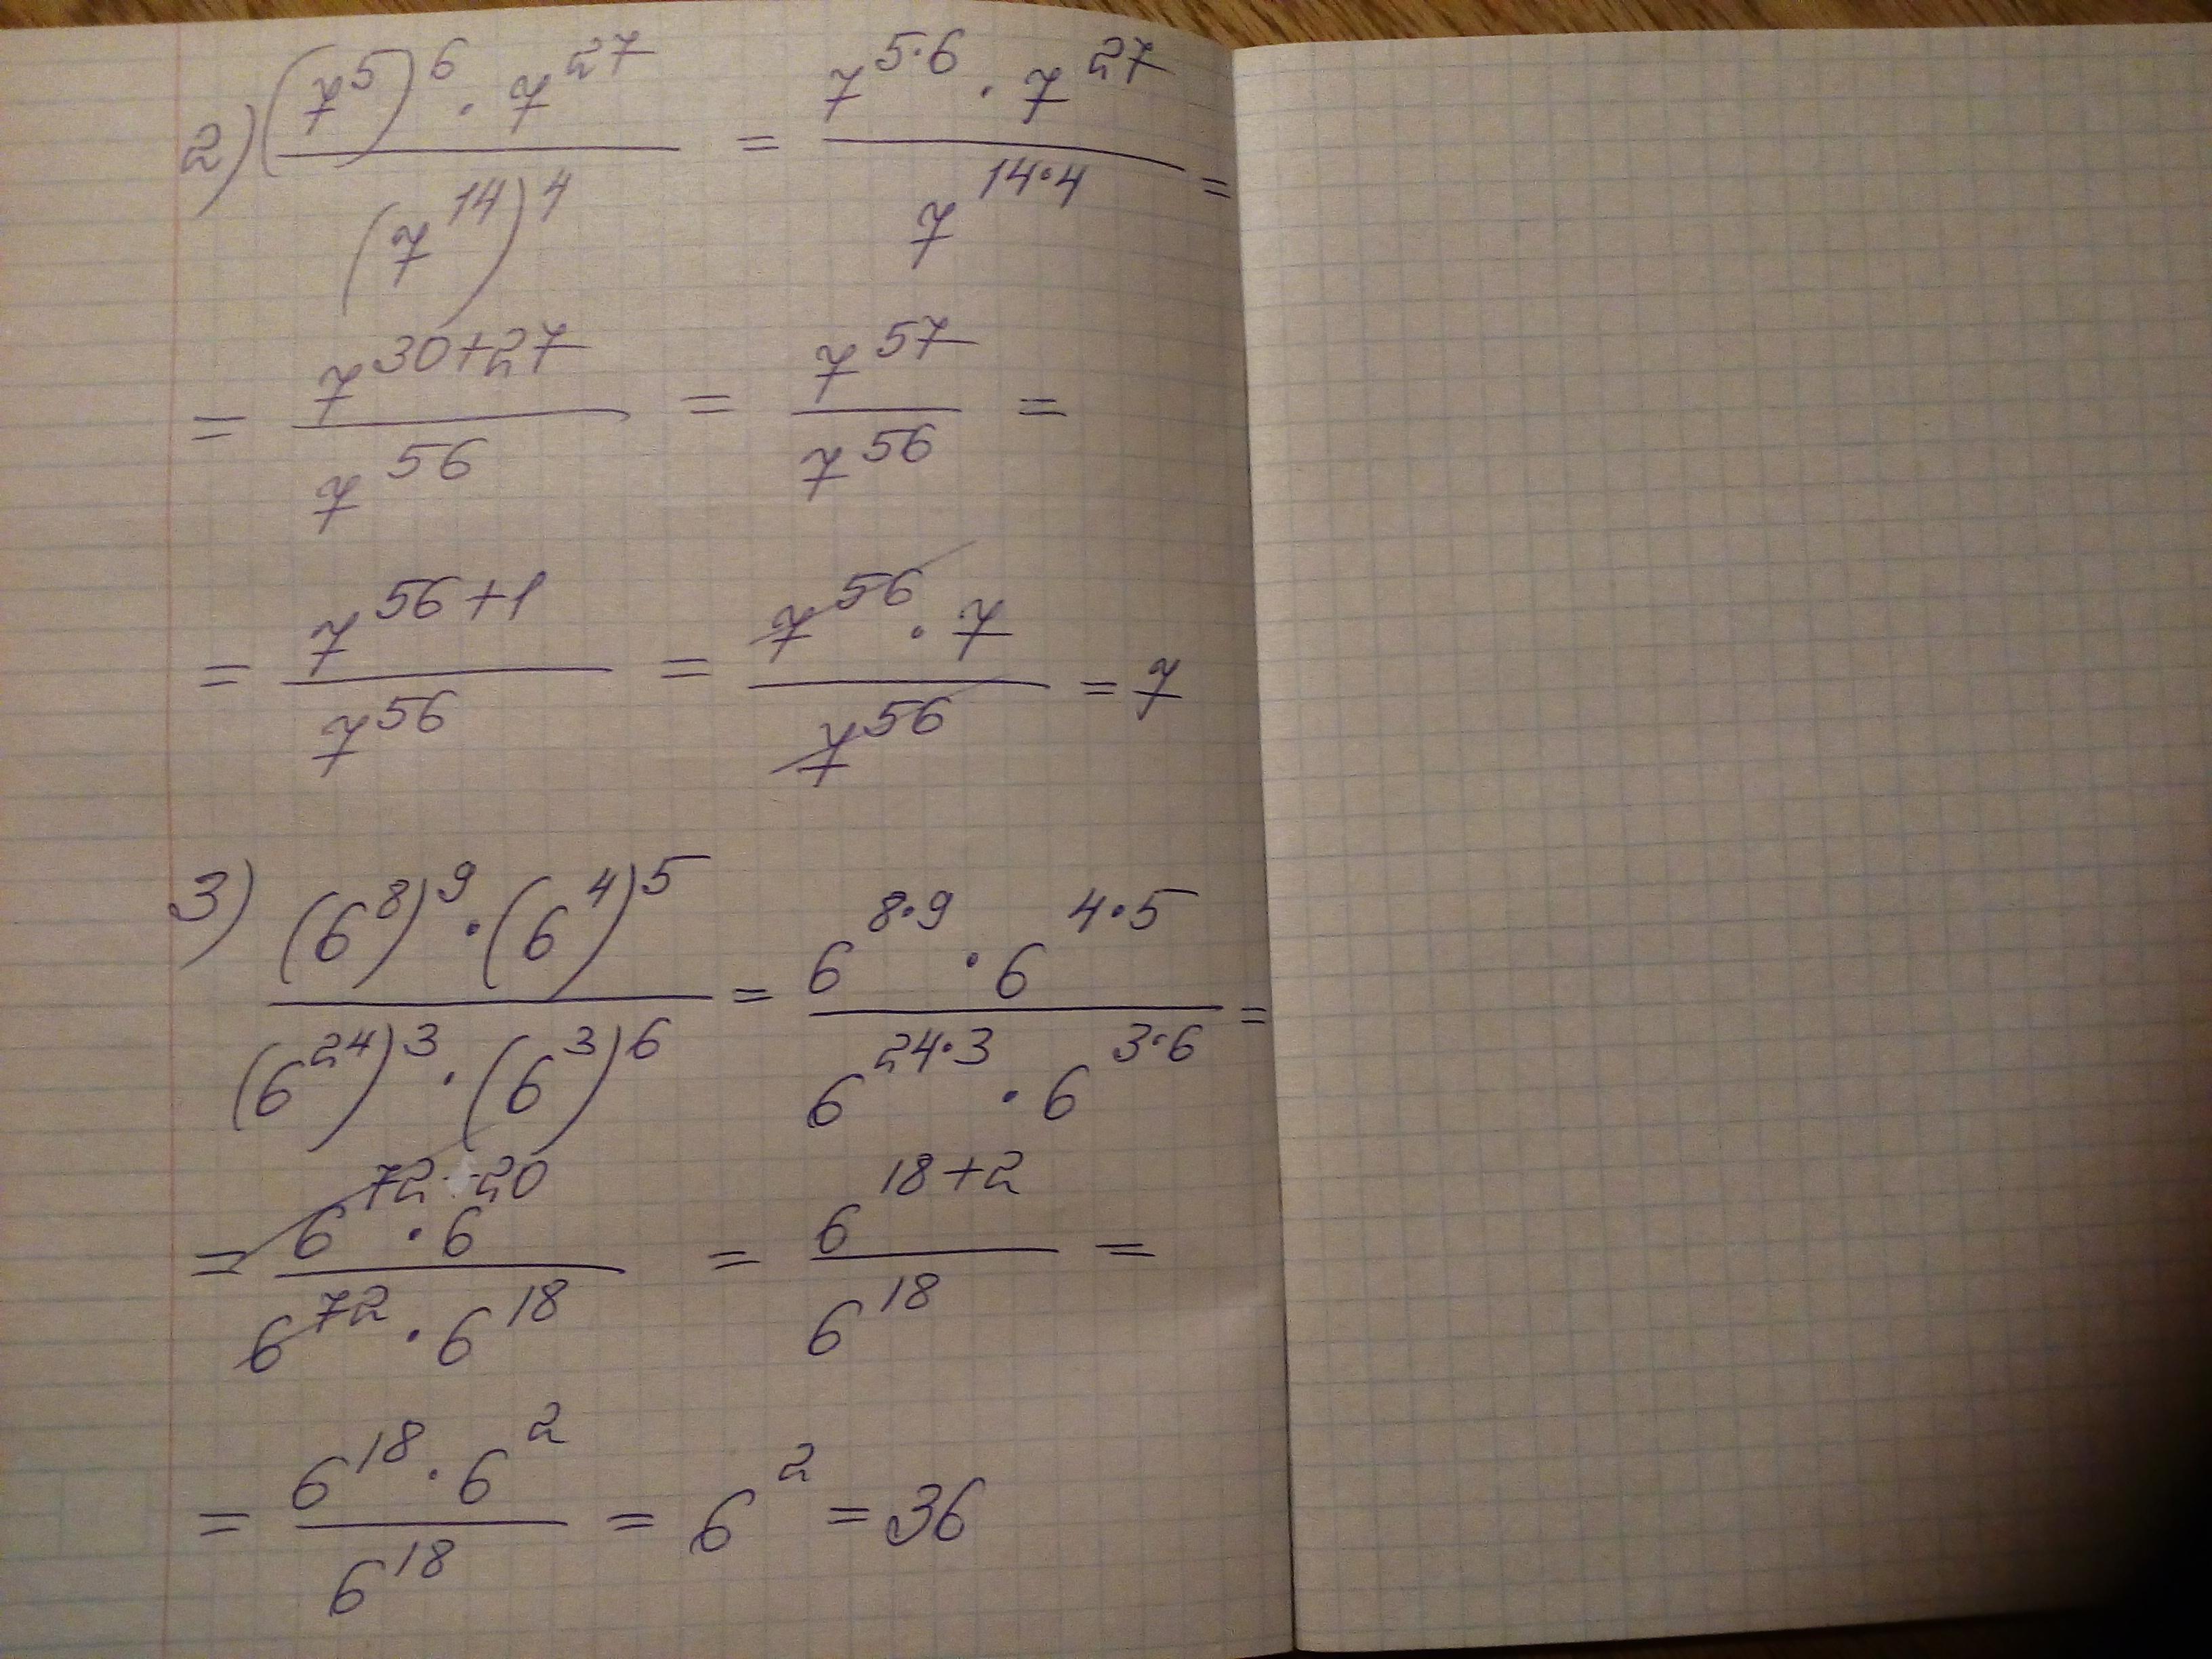 2) ((7^5)^6 · 7^27) / (7^14)^4 = (7^(5·6) · 7^27) / 7^(14·4) =
= 7^(30+27) / 7^56 = 7^57 / 7^56 =
= 7^(56+1) / 7^56 = (7^56 · 7) / 7^56 = 7
3) ((6^8)^9 · (6^4)^5) / ((6^24)^3 · (6^3)^6) = (6^(8·9) · 6^(4·5)) / (6^(24·3) · 6^(3·6)) =
= (6^72 · 6^20) / (6^72 · 6^18) = 6^(18+2) / 6^18 =
= (6^18 · 6^2) / 6^18 = 6^2 = 36